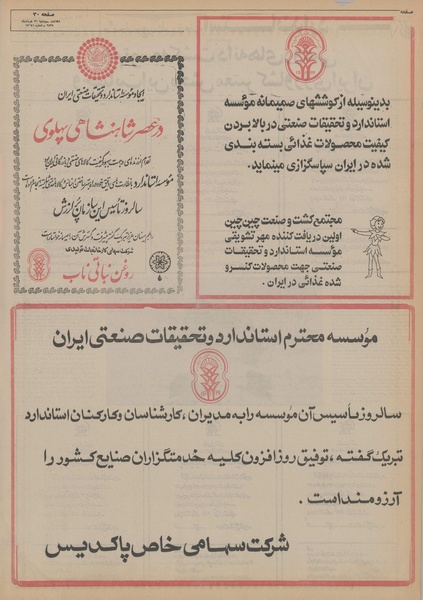 صفحه ۳۰
بدینوسیله از کوششهای صمیمانه مؤسسه
استاندارد و تحقیقات صنعتی در بالا بردن
کیفیت محصولات غذائی بسته بندی
شده در ایران سپاسگزاری مینماید.
مجتمع کشت و صنعت چین چین
اولین دریافت کننده مهر تشویقی
مؤسسه استاندارد و تحقیقات
صنعتی جهت محصولات کنسرو
شده غذائی در ایران.
ایجاد مؤسسه استاندارد و تحقیقات صنعتی ایران
در عصر شاهنشاهی پهلوی
مؤسسه استاندارد
سالروز تأسیس این سازمان پر ارزش
روغن نباتی ناب
مؤسسه محترم استاندارد و تحقیقات صنعتی ایران
سالروز تأسیس آن مؤسسه را به مدیران، کارشناسان و کارکنان استاندارد
تبریک گفته، توفیق روزافزون کلیه خدمتگزاران صنایع کشور را
آرزومند است.
شرکت سهامی خاص پاکدیس